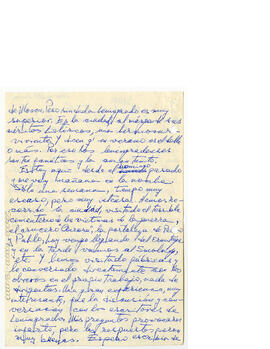 de Moscú. Pero sin duda Leningrado es muy
superior. Es la ciudad, al márgen de sus
méritos históricos, una hermosura
viviente. Y dicen q' en verano es el doble
o más. Por eso los leningradeses
son tan fanáticos y la aman tanto.
Estoy aquí desde el domingo pasado
y me voy mañana en la noche.
Sólo una semana, tiempo muy
escaso, pero muy intenso. Hemos re-
corrido la ciudad, visitado el terrible
cementerio de las víctimas de la guerra,
el crucero Aurora, la fortaleza de Pe. y
Pablo, hoy vengo llegando del Ermitage
y en la tarde vamos al
etc. Y hemos visitado fábricas y
he conversado directamente con los
obreros en el propio trabajo, nada de
dirigentes. Una gran experiencia, muy
interesante, fue la discusión y con-
versación con los escritores de
Leningrado. Mis preguntas provocaron
impacto, pero las respuestas
muy Espero escribir de